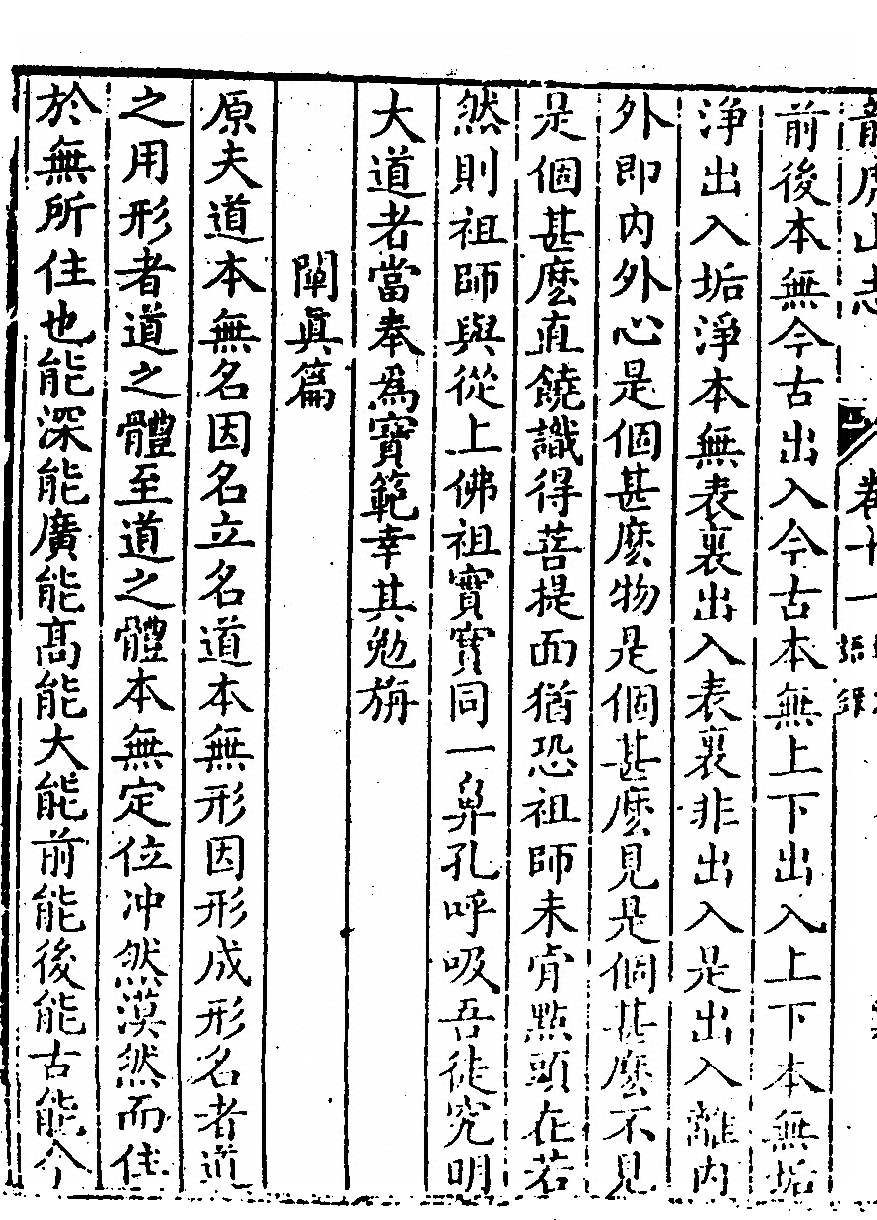 龍虎山志 卷十一
前後本無今古出入今古本無上下出入上下本無垢
淨出入垢淨本無表裏出入表裏非出入是出入離內
外即內外心是個甚麽物是個甚麽見是個甚麽不見
是個甚麽直饒識得菩提面猶恐祖師未肯點頭在若
然則祖師與從上佛祖實實同一鼻孔呼吸吾徒究明
大道者當奉爲寶範幸其勉旃
闡眞篇
原夫道本無名因名立名道本無形因形成形名者道
之用形者道之體至道之體本無定位冲然漠然而住
於無所住也能深能廣能高能大能前能後能古能今